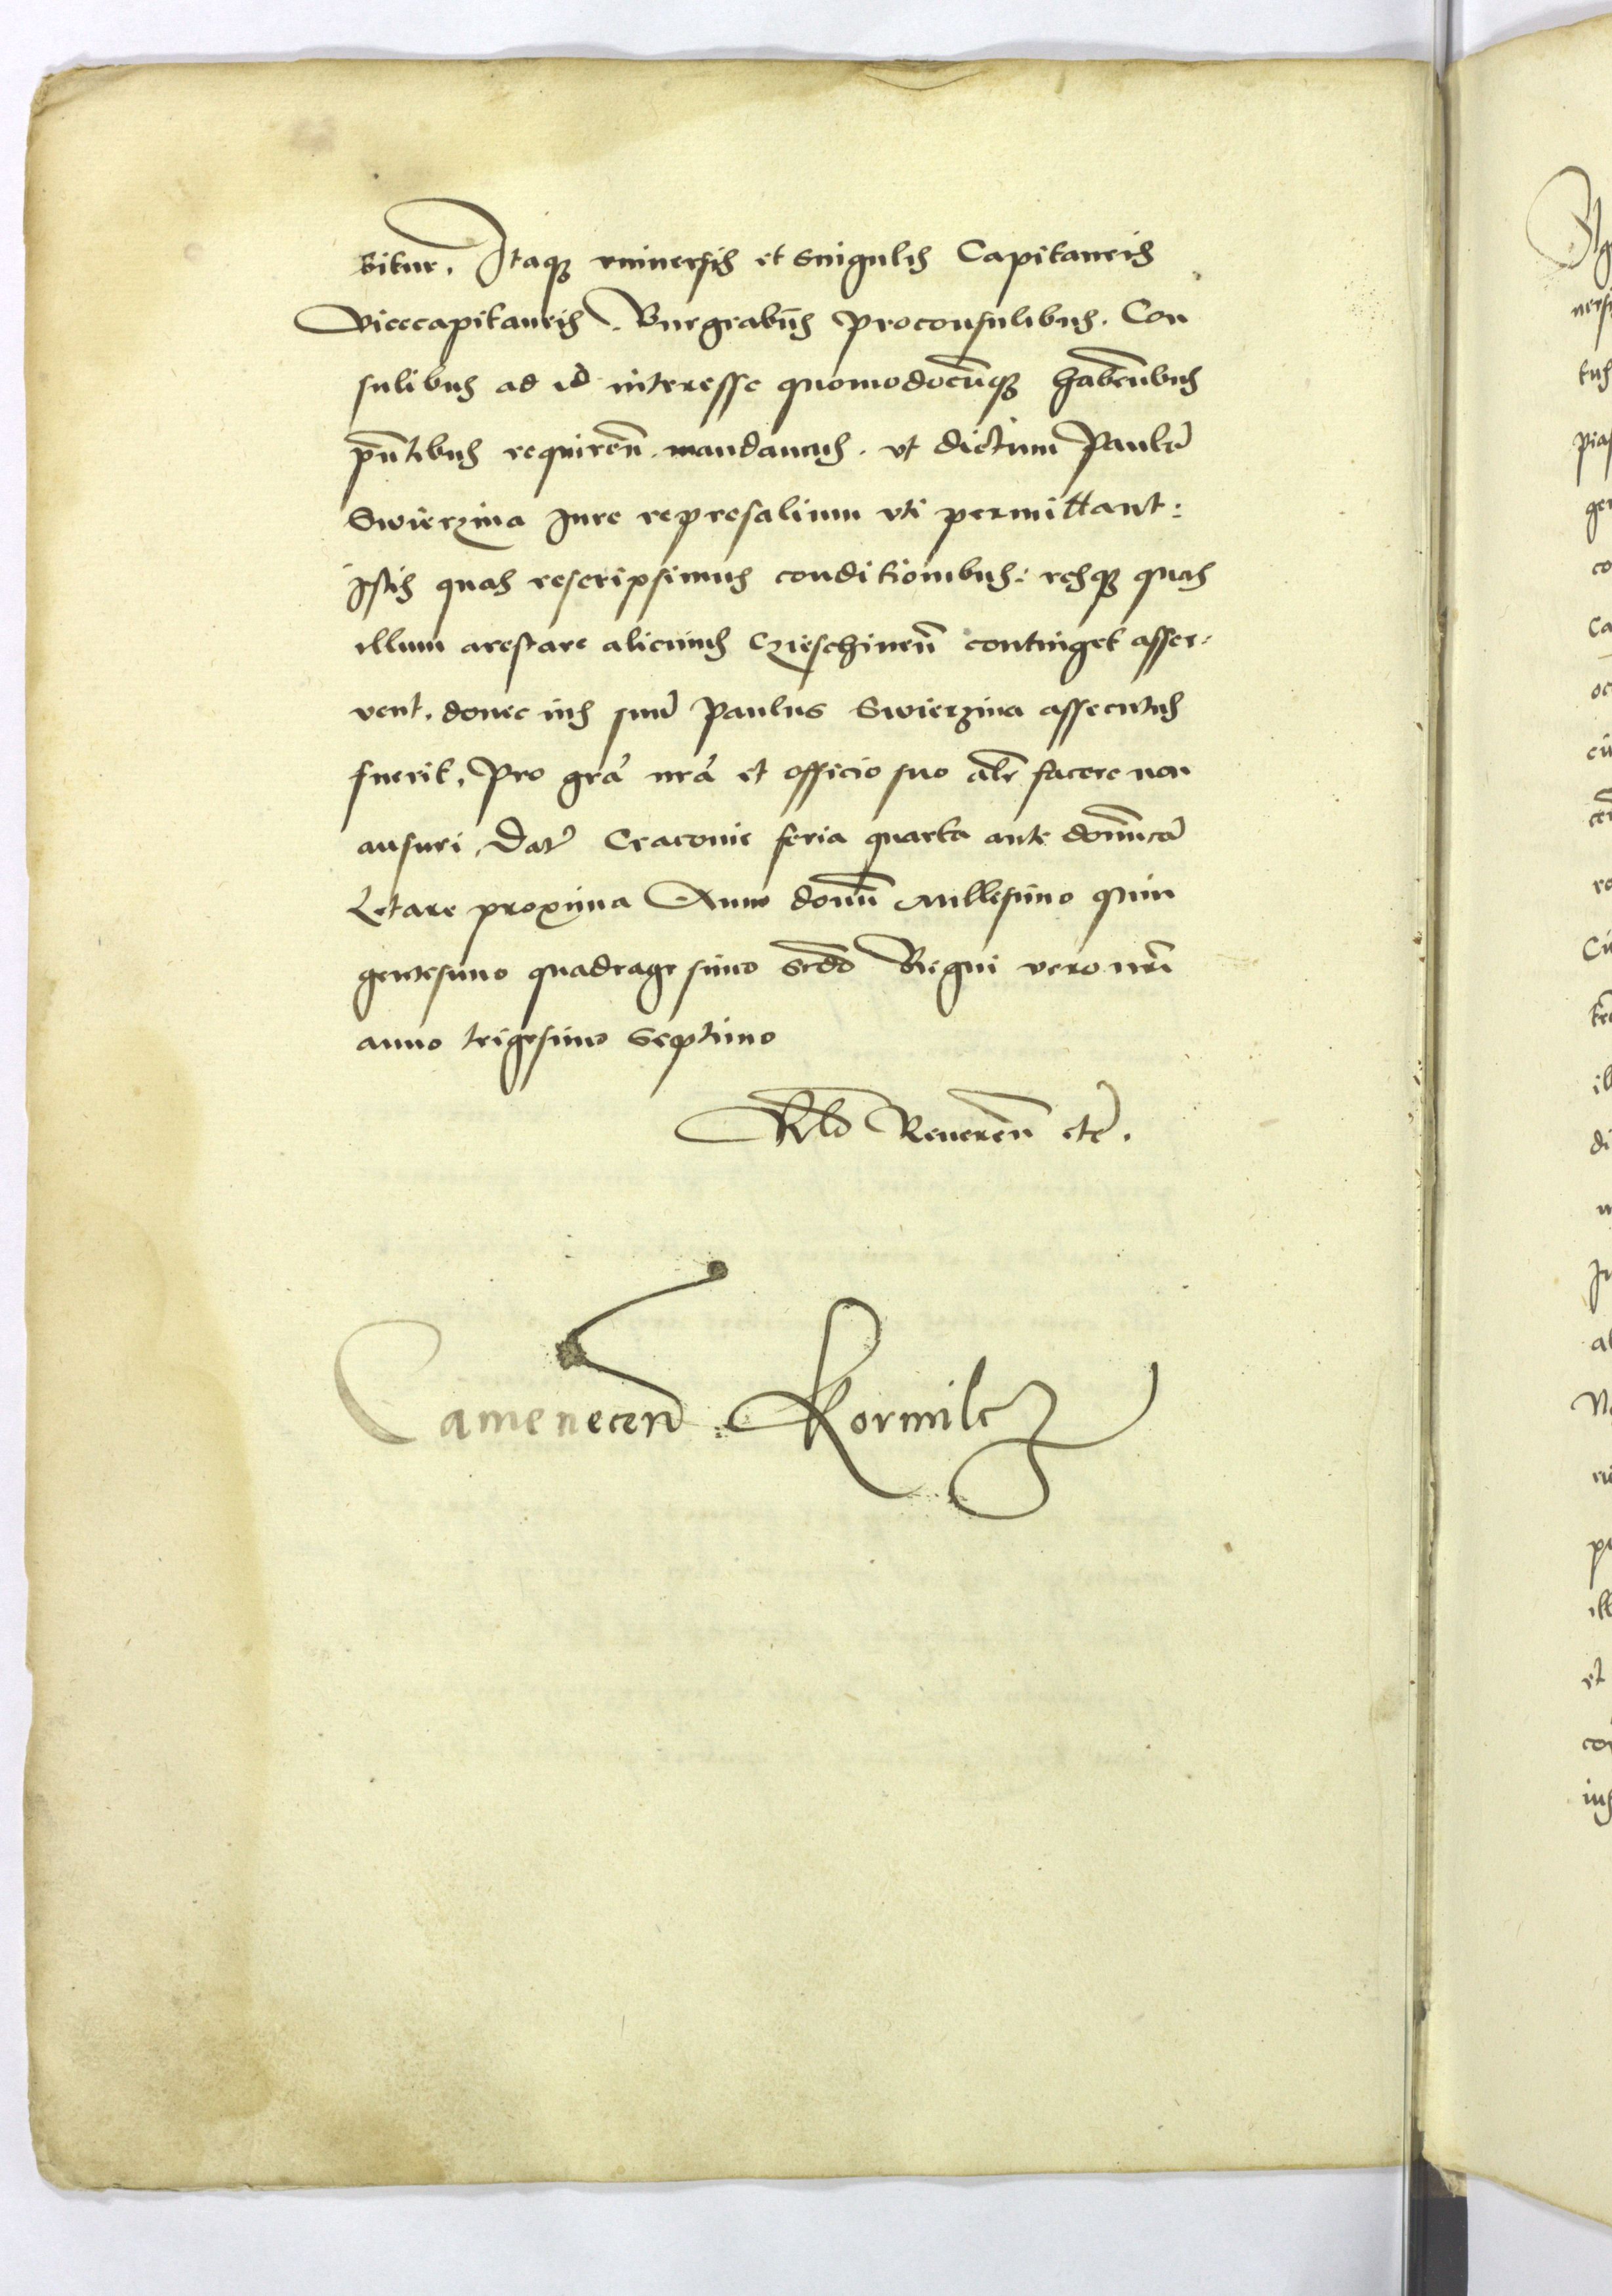 bitur. Itaqꝫ vniuersis et singulis Capitaneis
Vicecapitaneis. Burgrabijs Proconsulibus. Con
sulibus ad id interesse quomodocūqꝫ habēnbus
pn̄tibus requiren̄. mandamus. vt dictum Paulū
Swierzina Jure represalium vti permittant:
Istis quas rescripsimus conditionibus: resqꝫ quas
illum arestare alicuius Czieschinen̄ continget asser-
vent. donec ius suū Paulus Swierzina assecutus
fuerit. Pro grā nrā et officio suo alr̄ facere non
ausuri. Dat̄ Cracouie feria quarta ante domīcā
Letare proxima Anno domī Millesimo quin
gentesimo quadragesimo scdō Regni vero nrī
anno trigesimo septimo
Rlō Reueren̄ etc̄.
Camenecen̄ Kormilcz
Cu
di
et